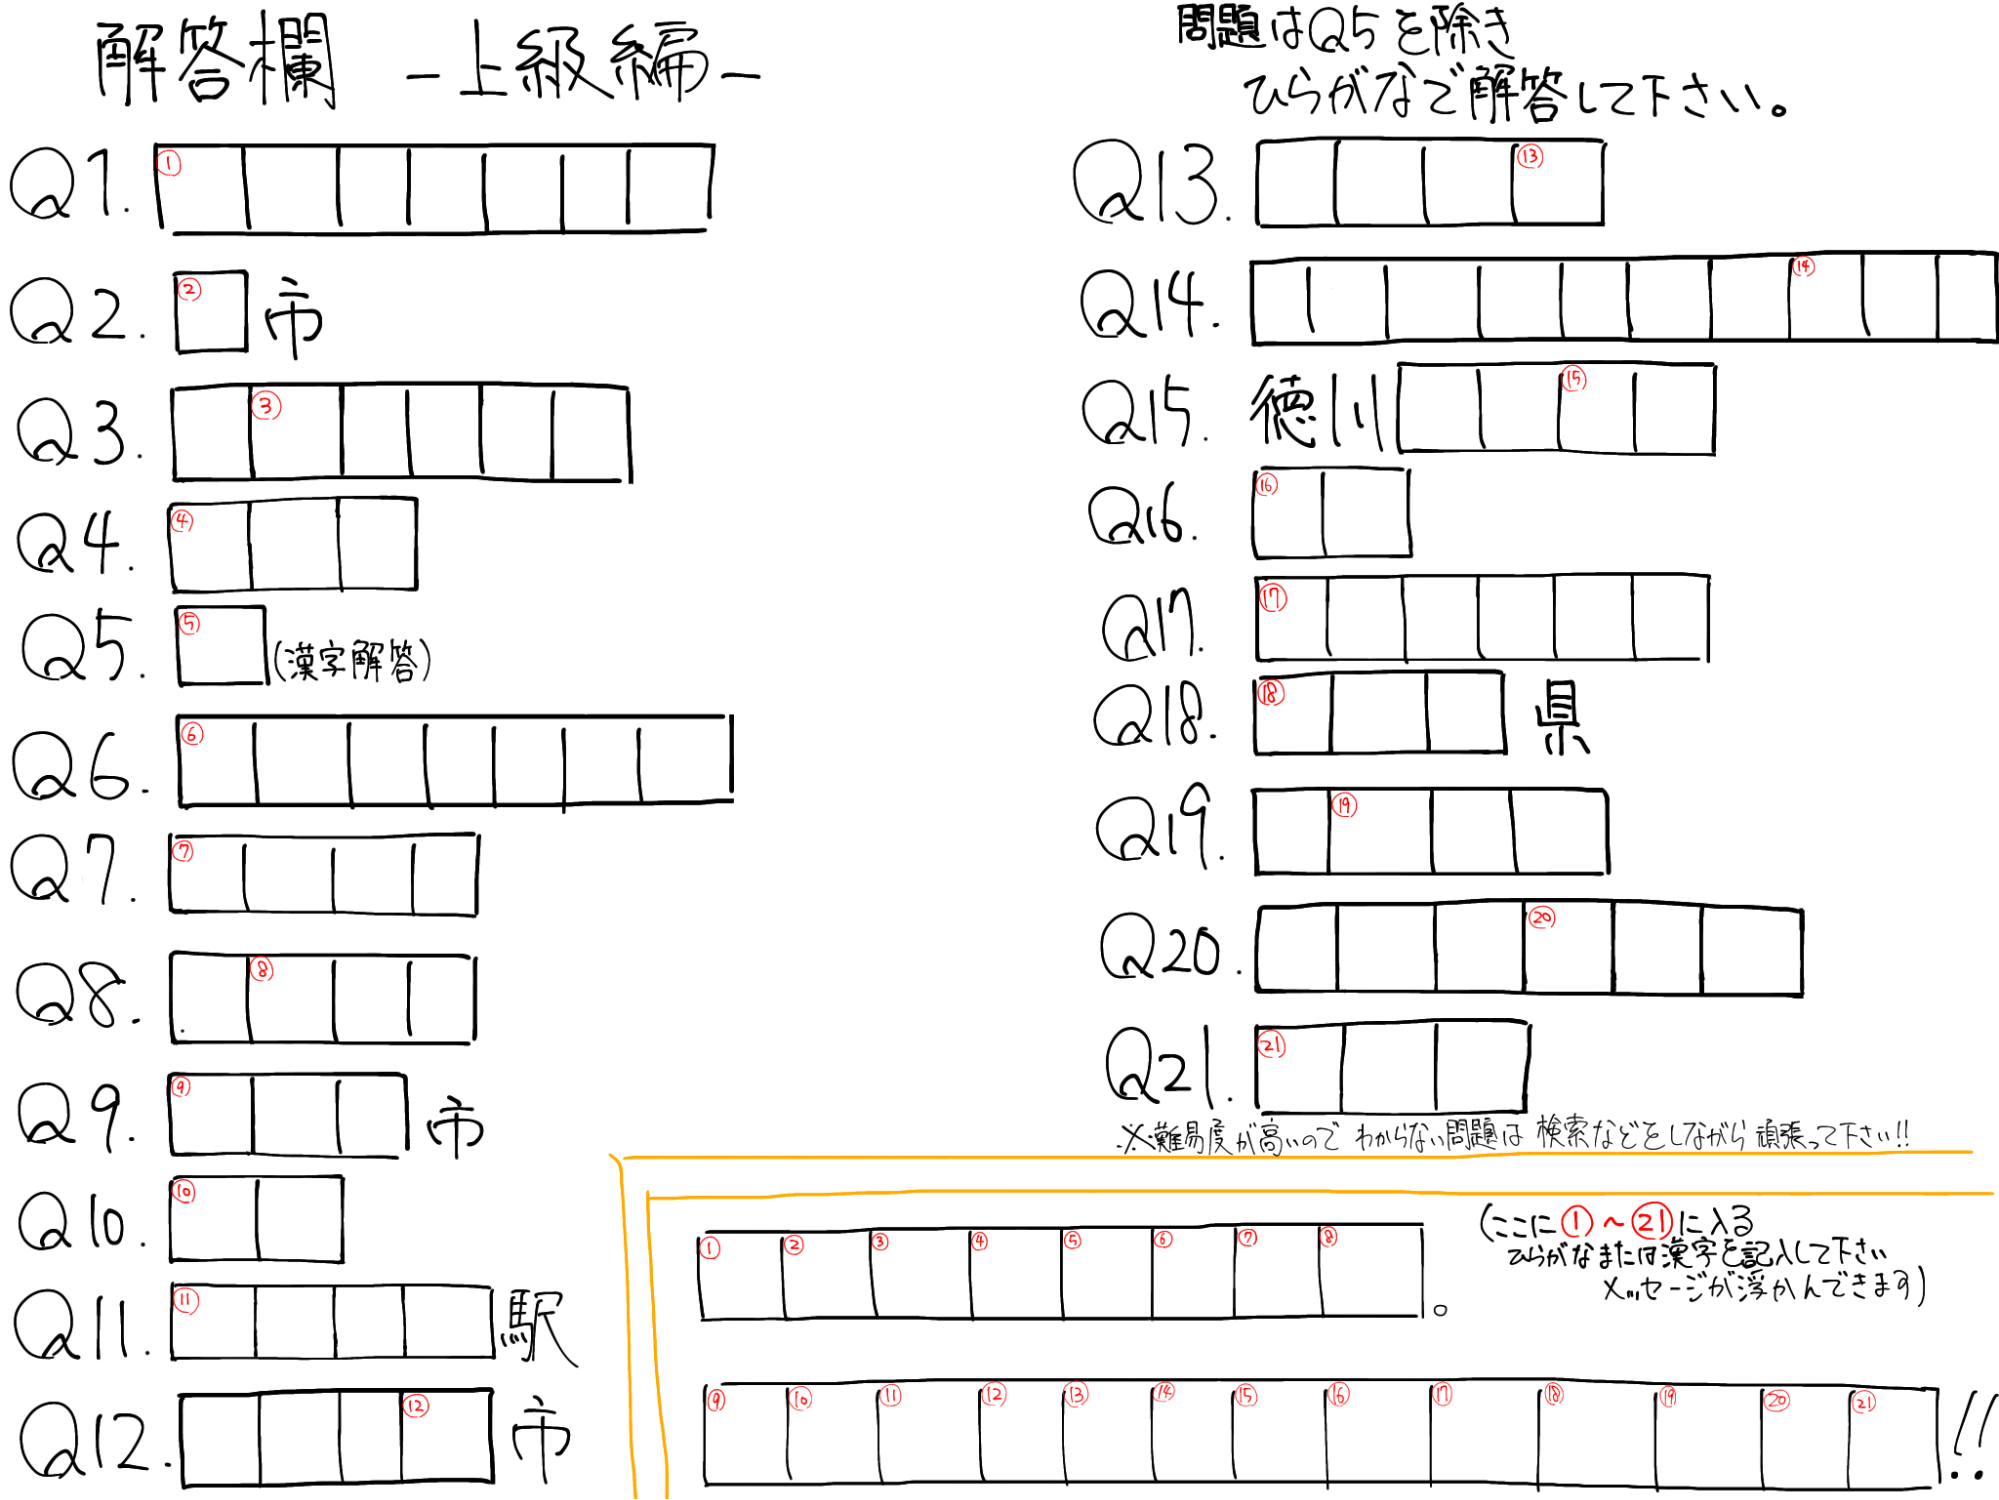 解答欄 -上級編-
問題はQ5を除き
ひらがなで解答して下さい。
Q1. ①
Q2. ② 市
Q3. ③
Q4. ④
Q5. ⑤ (漢字解答)
Q6. ⑥
Q7. ⑦
Q8. ⑧
Q9. ⑨ 市
Q10. ⑩
Q11. ⑪ 駅
Q12. ⑫ 市
Q13. ⑬
Q14. ⑭
Q15. 徳川 ⑮
Q16. ⑯
Q17. ⑰
Q18. ⑱ 県
Q19. ⑲
Q20. ⑳
Q21. ㉑
※難易度が高いので わからない問題は 検索などをしながら 頑張って下さい!!
① ② ③ ④ ⑤ ⑥ ⑦ ⑧ 。
(ここに①~㉑に入る
ひらがなまたは漢字を記入して下さい
メッセージが浮かんできます)
⑨ ⑩ ⑪ ⑫ ⑬ ⑭ ⑮ ⑯ ⑰ ⑱ ⑲ ⑳ ㉑ !!